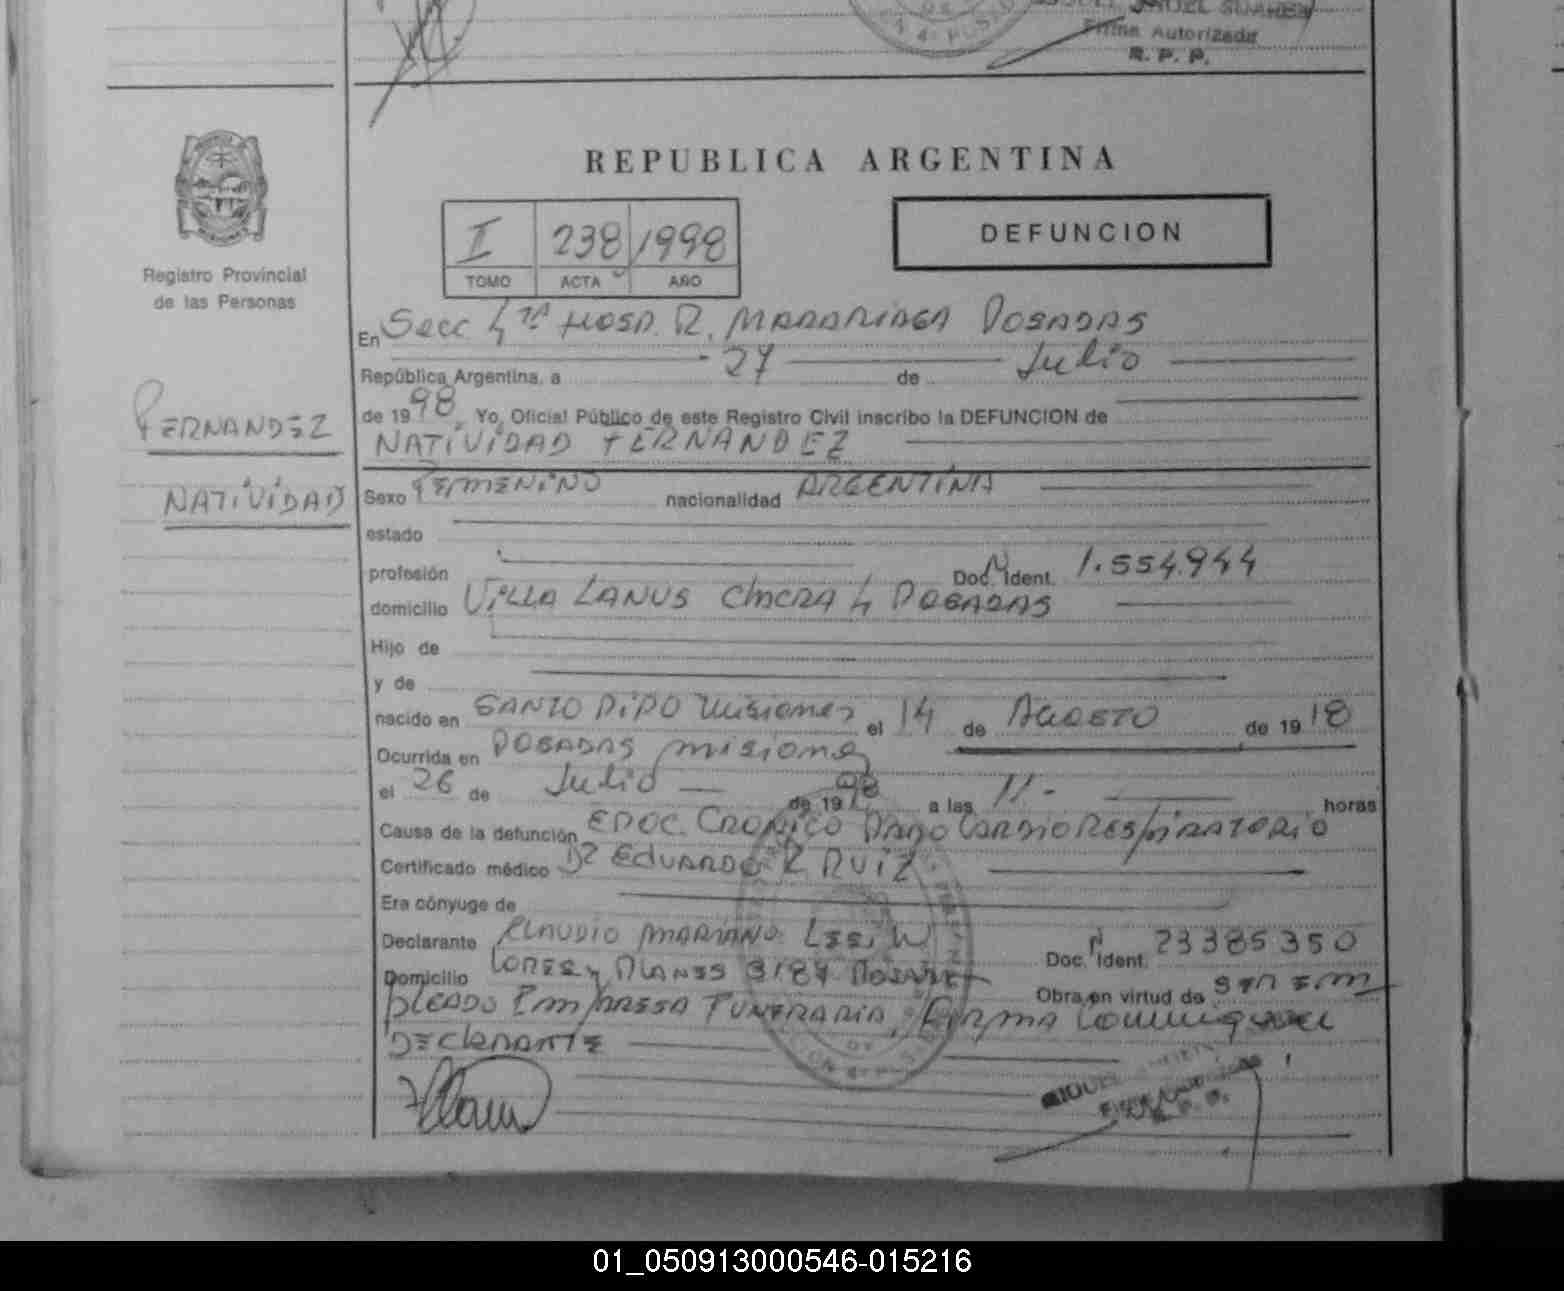 Firma Autorizada
R. P. P.
REPUBLICA ARGENTINA
I 238 1998
TOMO ACTA AÑO
DEFUNCION
Registro Provincial
de las Personas
En Secc 4ta Hosp. R. MADARIAGA POSADAS
República Argentina, a 27 de Julio
de 1998, Yo, Oficial Público de este Registro Civil inscribo la DEFUNCION de
NATIVIDAD FERNANDEZ
FERNANDEZ
NATIVIDAD
Sexo FEMENINO nacionalidad ARGENTINA
estado
profesión Doc. Ident. 1.554.944
domicilio VILLA LANUS CHACRA 4 POSADAS
Hijo de
y de
nacido en SANTO PIPO Misiones el 14 de AGOSTO de 1918
Ocurrida en POSADAS misiones
el 26 de Julio de 1998 a las 11 - horas
Causa de la defunción EPOC. CRONICO PARO CARDIO RESPIRATORIO
Certificado médico Dr EDUARDO R RUIZ
Era cónyuge de
Declarante CLAUDIO MARIANO Doc. Ident. 23385350
Domicilio LOPEZ y PLANES 3187 POSADAS Obra en virtud de SER EM
PLEADO EMPRESA FUNERARIA, FIRMA
DECLARANTE
01_050913000546-015216